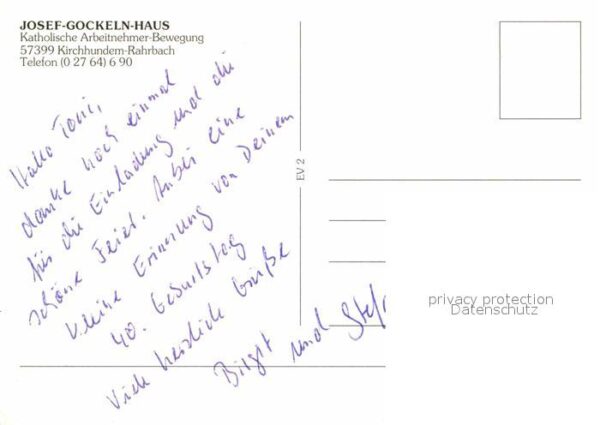 JOSEF-GOCKELN-HAUS
Katholische Arbeitnehmer-Bewegung
57399 Kirchhundem-Rahrbach
Telefon (0 27 64) 6 90
Hallo Toni,
danke noch einmal
für die Einladung und die
schöne Feier. Anbei eine
kleine Erinnerung von Deinem
40. Geburtstag
Viele herzliche Grüße
Birgit und Stef
EV 2
privacy protection
Datenschutz